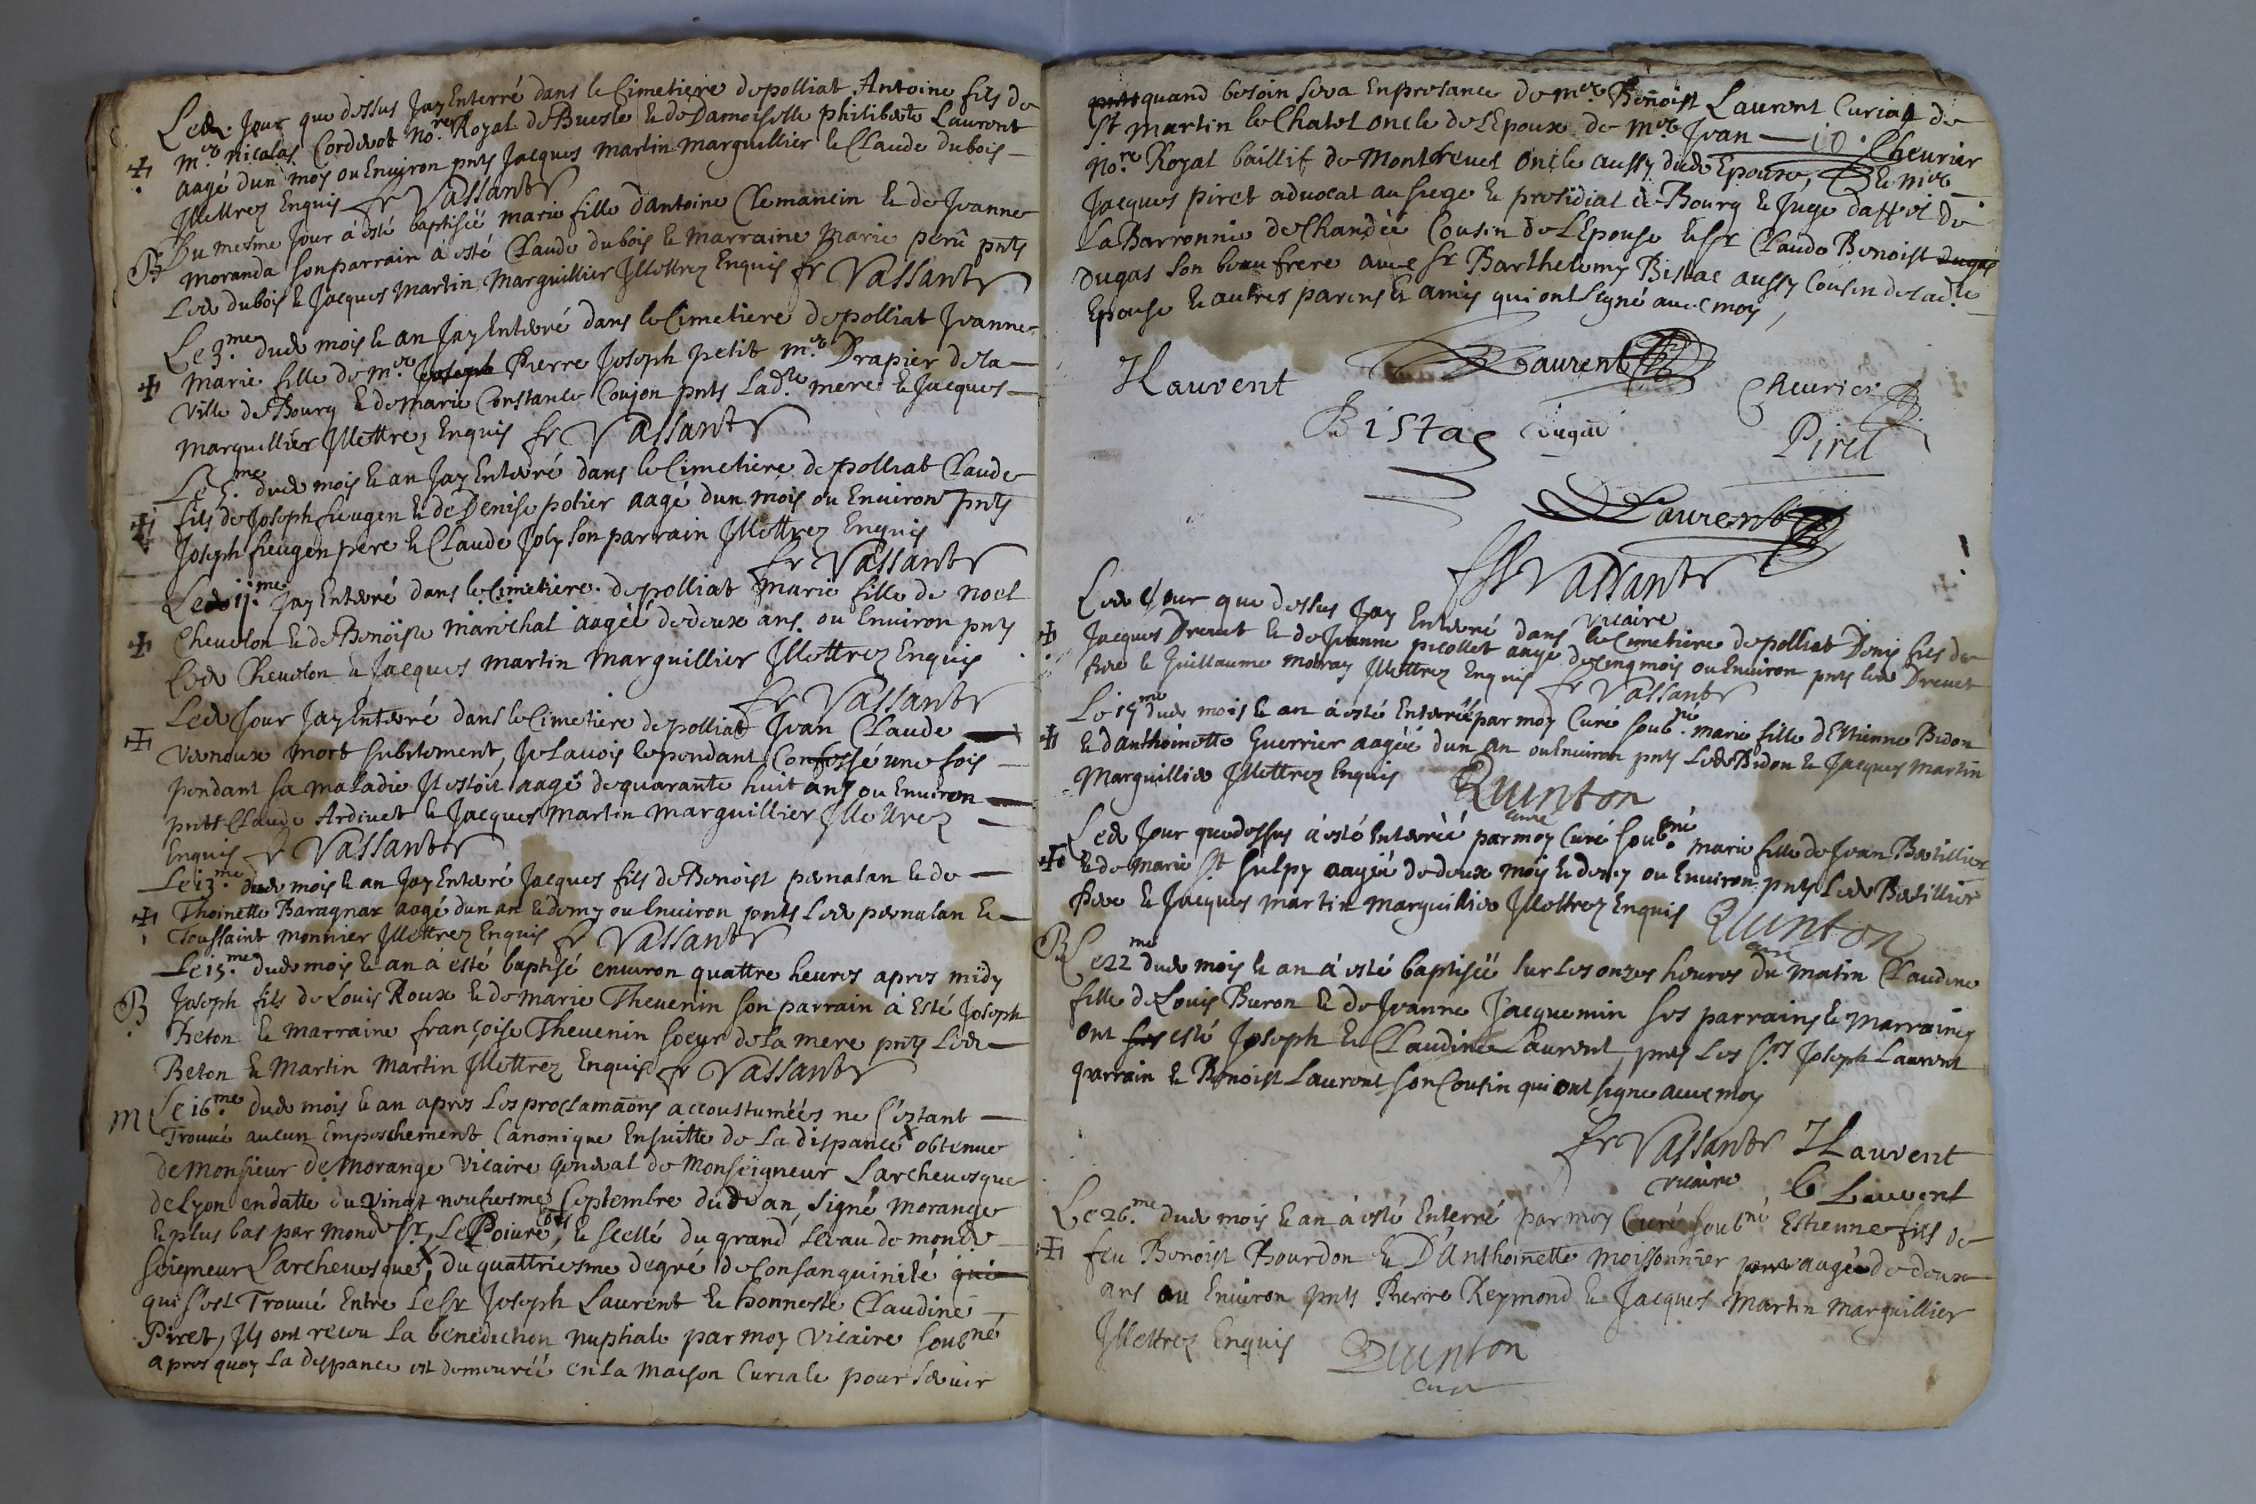 Led. Jour que dessus Jay Enterré dans le Cimetiere de polliat Antoine fils de
m.re nicolas Corderot No.re Royal de Buesle & de Damoiselle philiberte Laurent
aagé dun mois ou Environ pnts Jacques martin marguillier & Claude dubois
Illettrez Enquis fr Vassant
B Du mesme Jour a esté baptisée marie fille dantoine Clemancin & de Jeanne
moranda son parrain à esté Claude dubois & marraine Marie perû pnts
Led. dubois & Jacques martin Marguillier Illettrez Enquis fr Vassant
Le 3.me dud. mois & an Jay Enterré dans le Cimetiere de polliat Jeanne
Marie fille de m.re Joseph Pierre Joseph petit m.re Drapier de la
ville de Bourg & de marie Constance Coujon pnts Lad.te mere & Jacques
marguillier Illettrez Enquis fr Vassant
Le 5.me dud. mois & an Jay Enterré dans le Cimetiere de polliat Claude
fils de Joseph fieugen & de Denise potier aagé dun mois ou Environ pnts
Joseph fieugen pere & Claude Joly son parrain Illettrez Enquis
fr Vassant
Le 11.me Jay Enterré dans le Cimetiere de polliat marie fille de noel
Cheuelon & de Benoiste marechal aagée de deux ans ou Environ pnts
Led. Cheuelon & Jacques martin marguillier Illettrez Enquis
fr Vassant
Led. Jour Jay Enterré dans le Cimetiere de polliat Jean Claude
Vernoux mort subitement, Je Lavois cependant Confessé une fois
pendant sa maladie Il estoit aagé de quarante huit ans ou Environ
pnts Claude Ardiuet & Jacques martin marguillier Illettrez
Enquis fr Vassant
Le 13.me dud. mois & an Jay Enterré Jacques fils de Benoist pernalan & de
Thoinette Baragnax aagé dun an & demy ou Environ pnts Led. pernalan &
Toussaint monnier Illettrez Enquis fr Vassant
Le 15.me dud. mois & an à esté baptisé environ quattre heures apres midy
B Joseph fils de Louis Roux & de marie Thevenin son parrain à Esté Joseph
Beton & marraine françoise Thevenin soeur de la mere pnts Led.
Beton & Martin martin Illettrez Enquis fr Vassant
M Le 16.me dud. mois & an apres Les proclamaõns accoustumées ne s'estant
Trouué aucun Empeschement Canonique Ensuitte de La dispance obtenue
de Monsieur de Morange Vicaire general de Monseigneur Larcheuesque
de Lyon en datte du vingt neufiesme septembre dud. an, signé Morange
& plus bas par mond. Sr, Le Poivre, & scellé du grand sceau de mond.
Seigneur Larcheuesque, du quattriesme degré de Consanguinité qui
qui s'est Trouué Entre le Sr Joseph Laurent & honneste Claudine
Piret, Ils ont receu La benediction nuptiale par moy vicaire soubné
apres quoy La dispance est demeurée en La maison Curiale pour servir
pnts quand besoin sera En presance de m.re Benoist Laurent Curial de
St. martin le Chatel oncle de LEpoux de m.re Jean Cheurier
No.re Royal baillif de Montreuel oncle aussy dud. Epoux, & m.re
Jacques piret aduocat au siege & presidial de Bourg & Juge dappel de
La Barronnie de Chandée Cousin de LEpouse & Sr Claude Benoist dugas
Dugas son beau frere avec Sr Barthelemy Bistac aussy Cousin de lad.te
Epouse & autres parens & amis qui ont signé avec moy
JLaurent Laurent Cheurier
Bistac Dugas Piret
Laurent
fr Vassant
vicaire
Led. Jour que dessus Jay Enterré dans le Cimetiere de polliat Denis fils de
Jacques Dreuet & de Jeanne picollet aagé de cinq mois ou Environ pnts led. Dreuet
Pere & Guillaume moiray Illettrez Enquis fr Vassant
Le 19.me dud. mois & an à esté Enterrée par moy Curé soub.né marie fille d'Estienne Bidon
& danthoinette Guerrier aagée dun an ou Environ pnts Led. Bidon & Jacques martin
Marguillier Illettrez Enquis Quinton
curé
Led. Jour que dessus à esté Enterréé par moy Curé soub.né marie fille de Jean Bretillier
& de Marie St sulpy aagée de deux mois & demy ou Environ pnts Led. Bretillier
Pere & Jacques martin marguillier Illettrez Enquis Quinton
curé
B Le 22.me dud. mois & an à esté baptisée sur Les onzes heures du matin Claudine
fille de Louis Buron & de Jeanne Jacquemin ses parrains & marraines
ont ses esté Joseph & Claudine Laurent, pnts Les S.rs Joseph Laurent
parrain & Benoist Laurent son Cousin qui ont signé avec moy
fr Vassant JLaurent
vicaire B Laurent
Le 26.me dud. mois & an à esté Enterré par moy Curé soub.né Estienne fils de
feu Benoist Bourdon & D'Anthoinette moissonnier aagé de deux
ans ou Environ pnts Pierre Reymond & Jacques martin marguillier
Illettrez Enquis Quinton
curé